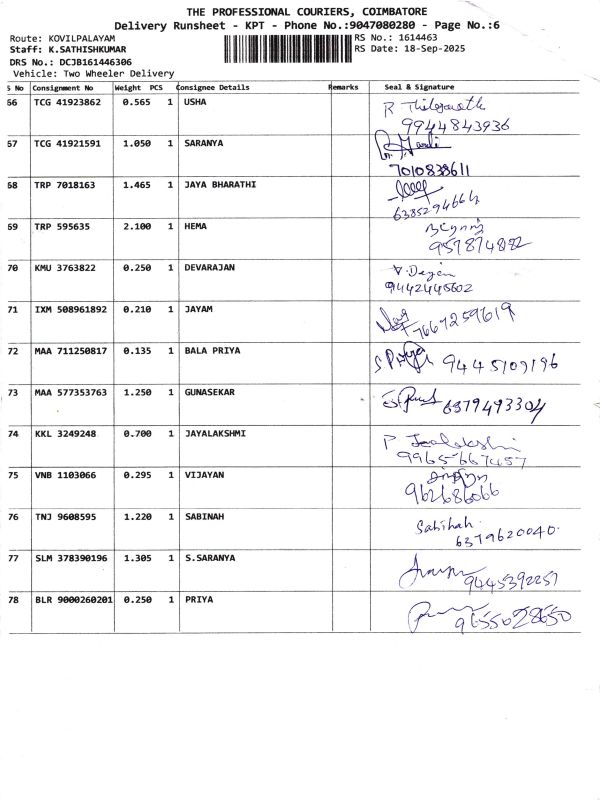 THE PROFESSIONAL COURIERS, COIMBATORE
Delivery Runsheet - KPT - Phone No.:9047080280 - Page No.:6
Route: KOVILPALAYAM RS No.: 1614463
Staff: K.SATHISHKUMAR RS Date: 18-Sep-2025
DRS No.: DCJB161446306
Vehicle: Two Wheeler Delivery
S No Consignment No Weight PCS Consignee Details Remarks Seal & Signature
66 TCG 41923862 0.565 1 USHA R
9944843936
67 TCG 41921591 1.050 1 SARANYA
7010838611
68 TRP 7018163 1.465 1 JAYA BHARATHI
6385294664
69 TRP 595635 2.100 1 HEMA
957874882
70 KMU 3763822 0.250 1 DEVARAJAN
9442445602
71 IXM 508961892 0.210 1 JAYAM 7667259619
72 MAA 711250817 0.135 1 BALA PRIYA S Priya 9445109196
73 MAA 577353763 1.250 1 GUNASEKAR 6379493304
74 KKL 3249248 0.700 1 JAYALAKSHMI P
9965667457
75 VNB 1103066 0.295 1 VIJAYAN
962686066
76 TNJ 9608595 1.220 1 SABINAH Sabihah
6379620040
77 SLM 378390196 1.305 1 S.SARANYA
9445392257
78 BLR 9000260201 0.250 1 PRIYA
9655028650